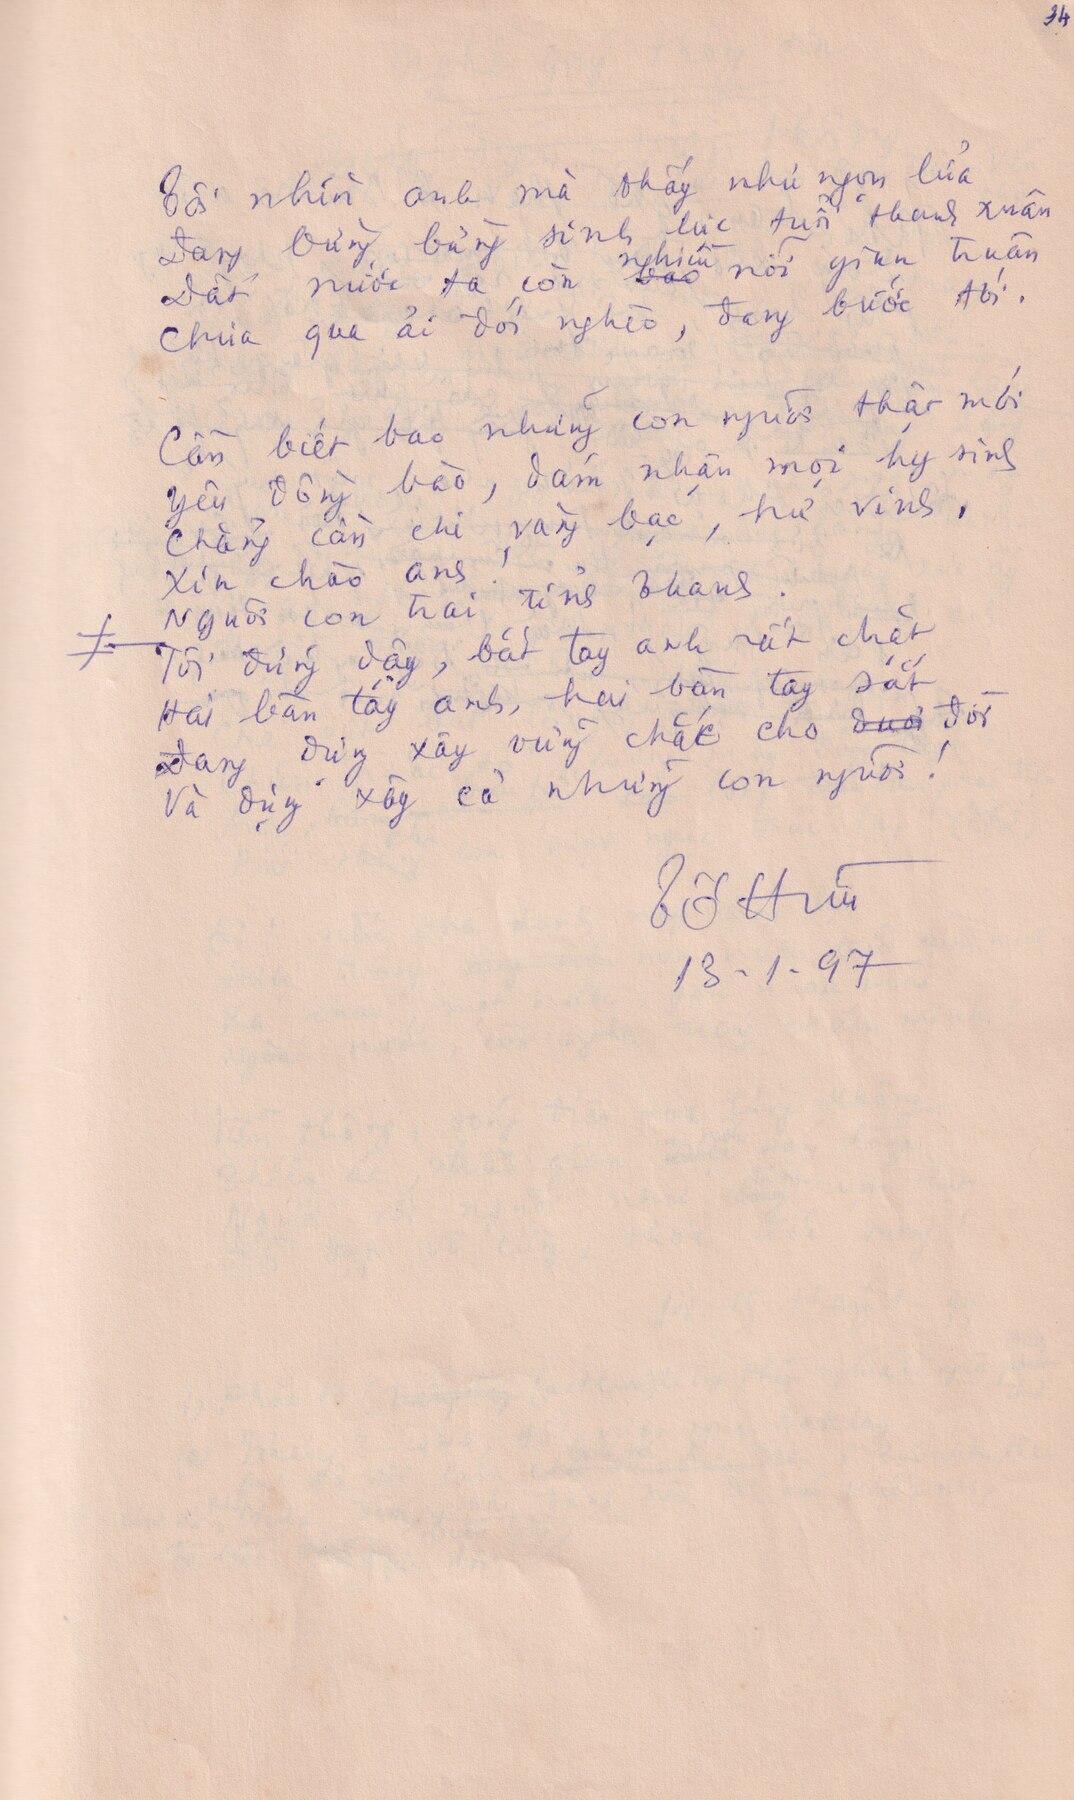 34
Tôi nhìn anh mà thấy như ngọn lửa
Đang bừng bừng sinh lực tuổi thanh xuân
Đất nước ta còn bao nhiều nỗi gian truân
Chưa qua ải đói nghèo, đang bước tới.
Cần biết bao những con người thật mới
Yêu đồng bào, dám nhận mọi hy sinh
Chẳng cần chi vàng bạc, hư vinh,
Xin chào anh!
Người con trai tỉnh Thanh.
Tôi đứng đây, bắt tay anh rất chặt
Hai bàn tay anh, hai bàn tay sắt
Đang dựng xây vững chắc cho đời
Và dựng xây cả những con người!
Tố Hữu
13-1-97